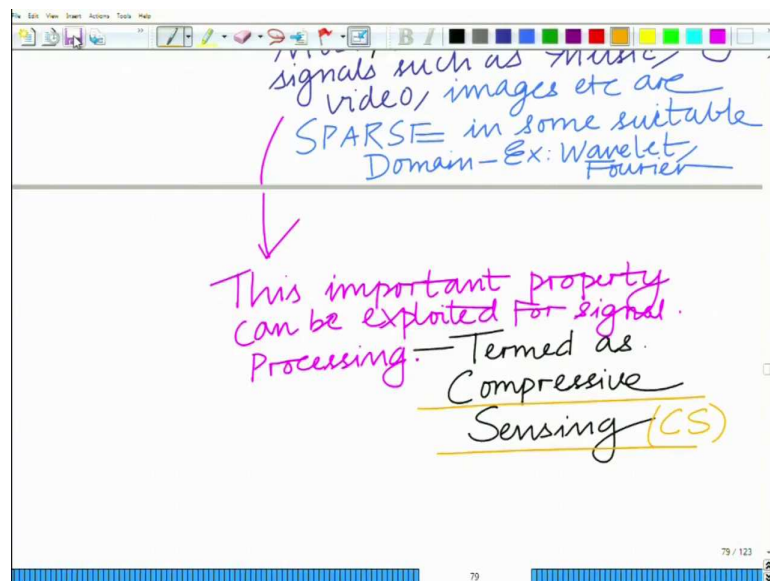 File Edit View Insert Actions Tools Help
B I
signals such as Music,
video, images etc are
SPARSE in some suitable
Domain - Ex: Wavelet,
Fourier
This important property
can be exploited for signal.
Processing. - Termed as.
Compressive
Sensing (CS)
79 / 123
79